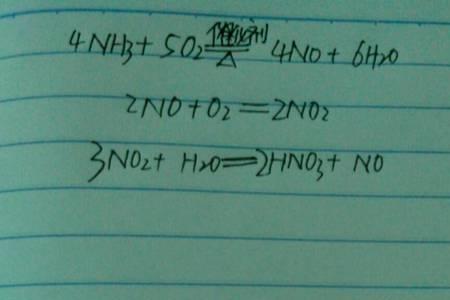 4NH3 + 5O2 催化剂 △ 4NO + 6H2O
2NO + O2 = 2NO2
3NO2 + H2O = 2HNO3 + NO